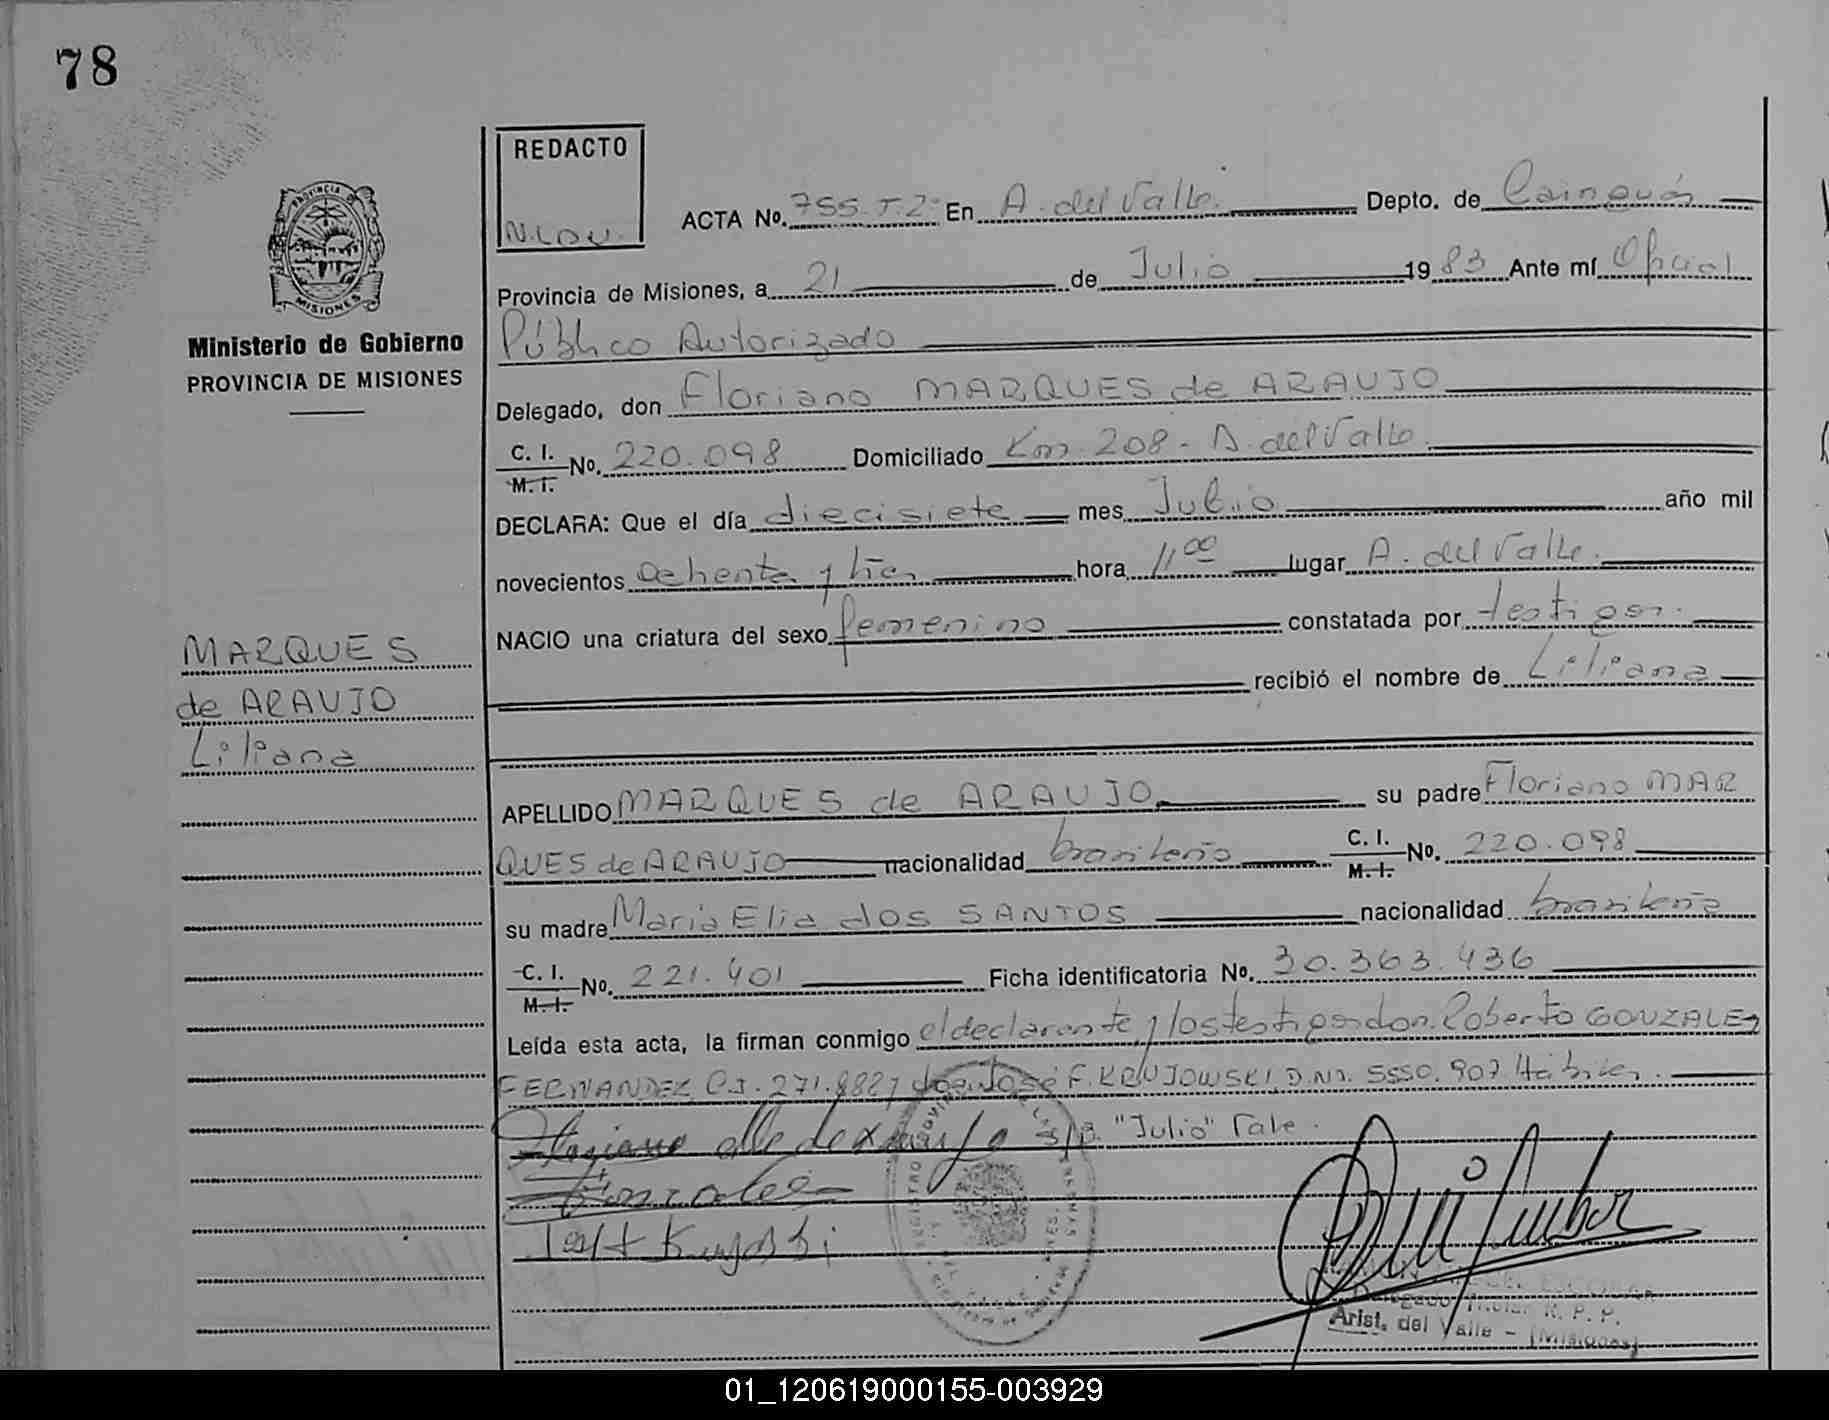 78
REDACTO
ACTA No. 755.T.2º En A. del Valle. Depto. de Cainguás
N.LDV.
PROVINCIA DE
MISIONES
Provincia de Misiones, a 21 de Julio 1983 Ante mí Oficial
Ministerio de Gobierno
PROVINCIA DE MISIONES
Público Autorizado
Delegado, don Floriano MARQUES de ARAUJO
C. I.
M. I. No. 220.098 Domiciliado Km. 208 - A. del Valle.
DECLARA: Que el día diecisiete mes Julio año mil
novecientos ochenta y tres hora 11.00 lugar A. del Valle.
NACIO una criatura del sexo femenino constatada por testigos.
recibió el nombre de Liliana
MARQUES
de ARAUJO
Liliana
APELLIDO MARQUES de ARAUJO su padre Floriano MAR
QUES de ARAUJO nacionalidad brasileño C. I. M. I. No. 220.098
su madre Maria Elia dos SANTOS nacionalidad brasileña
C. I. M. I. No. 221.401 Ficha identificatoria No. 30.363.436
Leída esta acta, la firman conmigo el declarante y los testigos don. Roberto GONZALEZ
FERNANDEZ C.I. 271.882 y don José F. KRUJOWSKI D.NI. 5550.907 Hábiles.
s/r. "Julio" Vale.
Gonzales
Delegado Titular R. P. P.
Arist. del Valle - (Misiones)
01_120619000155-003929